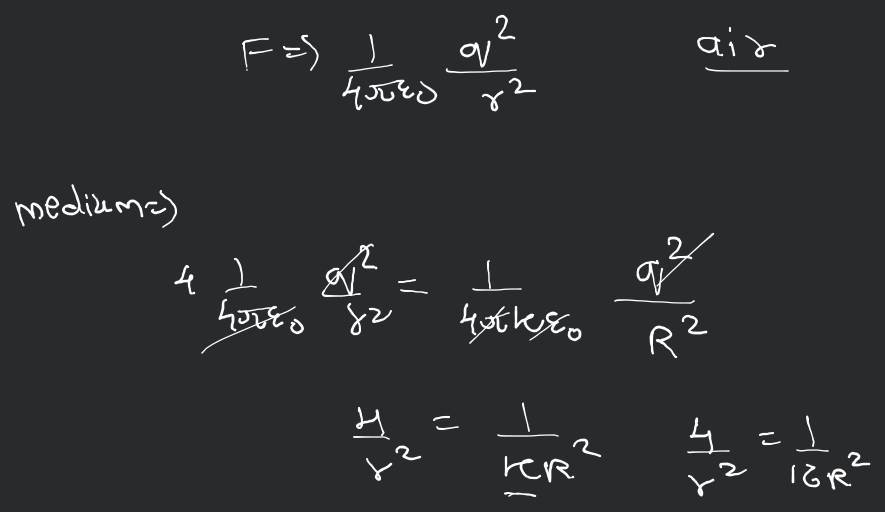 F ⇒ 1/4πε0 q²/r² air
medium ⇒
4 1/4πε0 q²/r² = 1/4πkε0 q²/R²
4/r² = 1/kR² 4/r² = 1/16R²